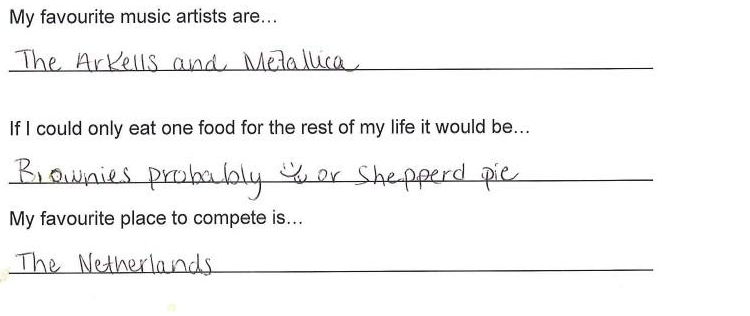 My favourite music artists are...
The Arkells and Metallica
If I could only eat one food for the rest of my life it would be...
Brownies probably or Shepperd pie
My favourite place to compete is...
The Netherlands